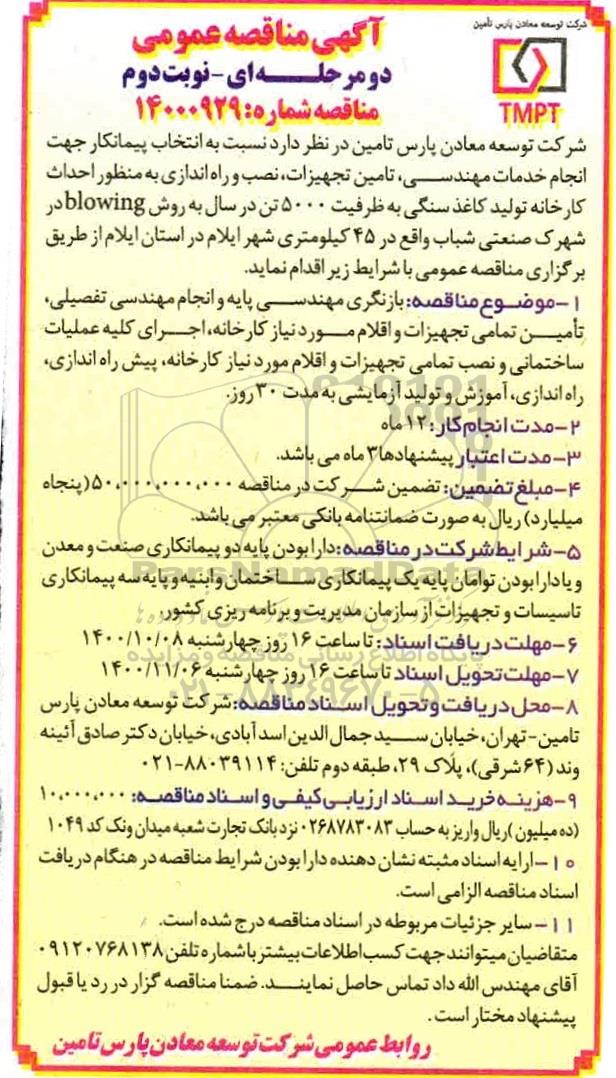 شرکت توسعه معادن پارس تأمین
TMPT
آگهی مناقصه عمومی
دو مرحله ای - نوبت دوم
مناقصه شماره: ۱۴۰۰۰۹۲۹
شرکت توسعه معادن پارس تامین در نظر دارد نسبت به انتخاب پیمانکار جهت
انجام خدمات مهندسی، تامین تجهیزات، نصب و راه اندازی به منظور احداث
کارخانه تولید کاغذ سنگی به ظرفیت ۵۰۰۰ تن در سال به روش blowing در
شهرک صنعتی شباب واقع در ۴۵ کیلومتری شهر ایلام در استان ایلام از طریق
برگزاری مناقصه عمومی با شرایط زیر اقدام نماید.
۱- موضوع مناقصه: بازنگری مهندسی پایه و انجام مهندسی تفصیلی،
تأمین تمامی تجهیزات و اقلام مورد نیاز کارخانه، اجرای کلیه عملیات
ساختمانی و نصب تمامی تجهیزات و اقلام مورد نیاز کارخانه، پیش راه اندازی،
راه اندازی، آموزش و تولید آزمایشی به مدت ۳۰ روز.
۲- مدت انجام کار: ۱۲ ماه
۳- مدت اعتبار پیشنهادها ۳ ماه می باشد.
۴- مبلغ تضمین: تضمین شرکت در مناقصه ۵۰،۰۰۰،۰۰۰،۰۰۰ (پنجاه
میلیارد) ریال به صورت ضمانتنامه بانکی معتبر می باشد.
۵- شرایط شرکت در مناقصه: دارا بودن پایه دو پیمانکاری صنعت و معدن
و یا دارا بودن توامان پایه یک پیمانکاری ساختمان و ابنیه و پایه سه پیمانکاری
تاسیسات و تجهیزات از سازمان مدیریت و برنامه ریزی کشور.
۶- مهلت دریافت اسناد: تا ساعت ۱۶ روز چهارشنبه ۱۴۰۰/۱۰/۰۸
۷- مهلت تحویل اسناد تا ساعت ۱۶ روز چهارشنبه ۱۴۰۰/۱۱/۰۶
۸- محل دریافت و تحویل اسناد مناقصه: شرکت توسعه معادن پارس
تامین - تهران، خیابان سید جمال الدین اسد آبادی، خیابان دکتر صادق آئینه
وند (۶۴ شرقی)، پلاک ۲۹، طبقه دوم تلفن: ۸۸۰۳۹۱۱۴-۰۲۱
۹- هزینه خرید اسناد ارزیابی کیفی و اسناد مناقصه: ۱۰،۰۰۰،۰۰۰
(ده میلیون) ریال واریز به حساب ۰۲۶۸۷۸۳۰۸۳ نزد بانک تجارت شعبه میدان ونک کد ۱۰۴۹
۱۰- ارایه اسناد مثبته نشان دهنده دارا بودن شرایط مناقصه در هنگام دریافت
اسناد مناقصه الزامی است.
۱۱- سایر جزئیات مربوطه در اسناد مناقصه درج شده است.
متقاضیان میتوانند جهت کسب اطلاعات بیشتر با شماره تلفن ۰۹۱۲۰۷۶۸۱۳۸
آقای مهندس الله داد تماس حاصل نمایند. ضمنا مناقصه گزار در رد یا قبول
پیشنهاد مختار است.
روابط عمومی شرکت توسعه معادن پارس تامین
ParsNamadData
پایگاه اطلاع رسانی مناقصه و مزایده
۰۲۱-۸۸۳۴۹۶۷۰-۵